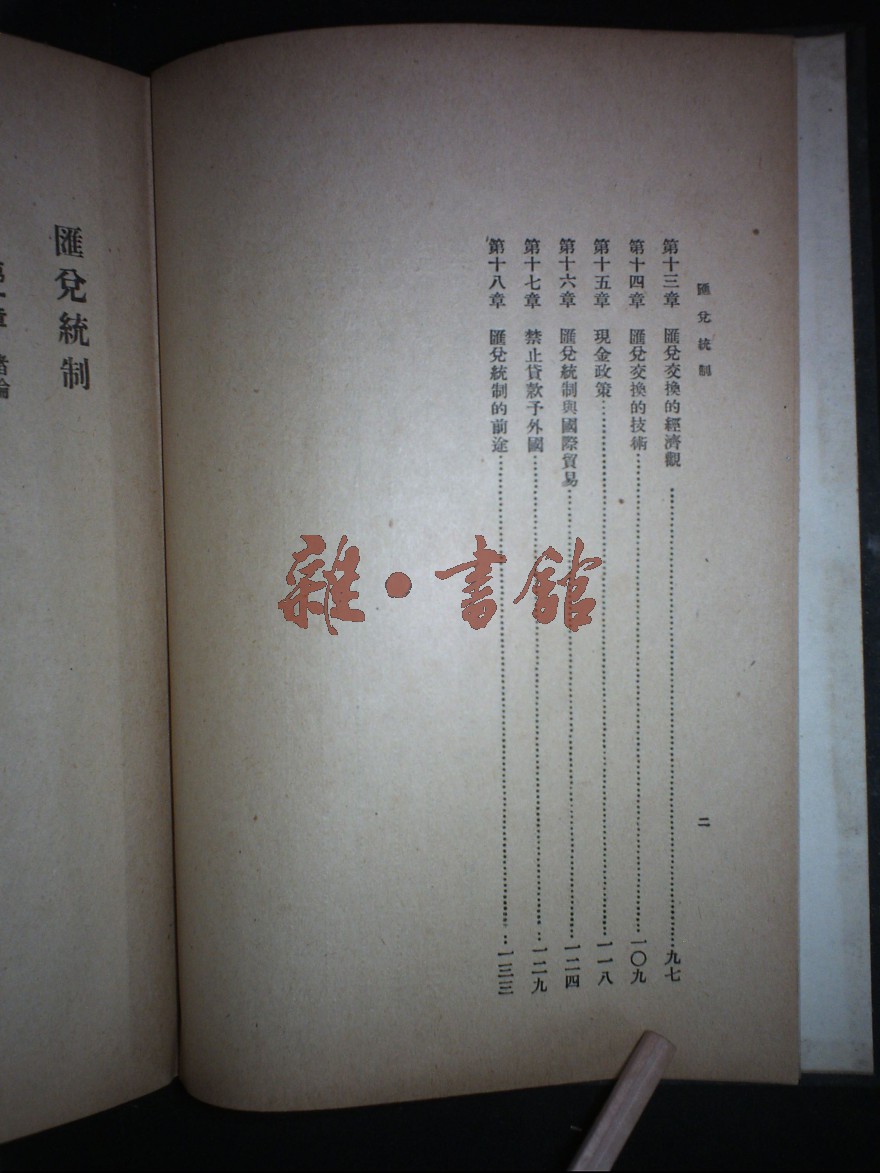 匯兌統制
第十三章 匯兌交換的經濟觀………九七
第十四章 匯兌交換的技術………一〇九
第十五章 現金政策………一一八
第十六章 匯兌統制與國際貿易………一二四
第十七章 禁止貸款予外國………一二九
第十八章 匯兌統制的前途………一三三
二
雜·書館
匯兌統制
第一章 緒論